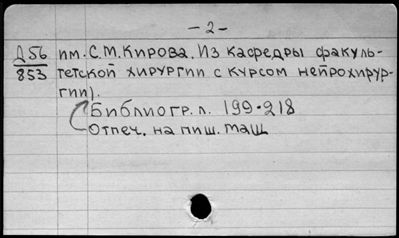 - 2 -
Д56 им. С.М. Кирова. Из кафедры факуль-
853 тетской хирургии с курсом нейрохирур-
гии).
Библиогр. л. 199-218
Отпеч. на пиш. маш